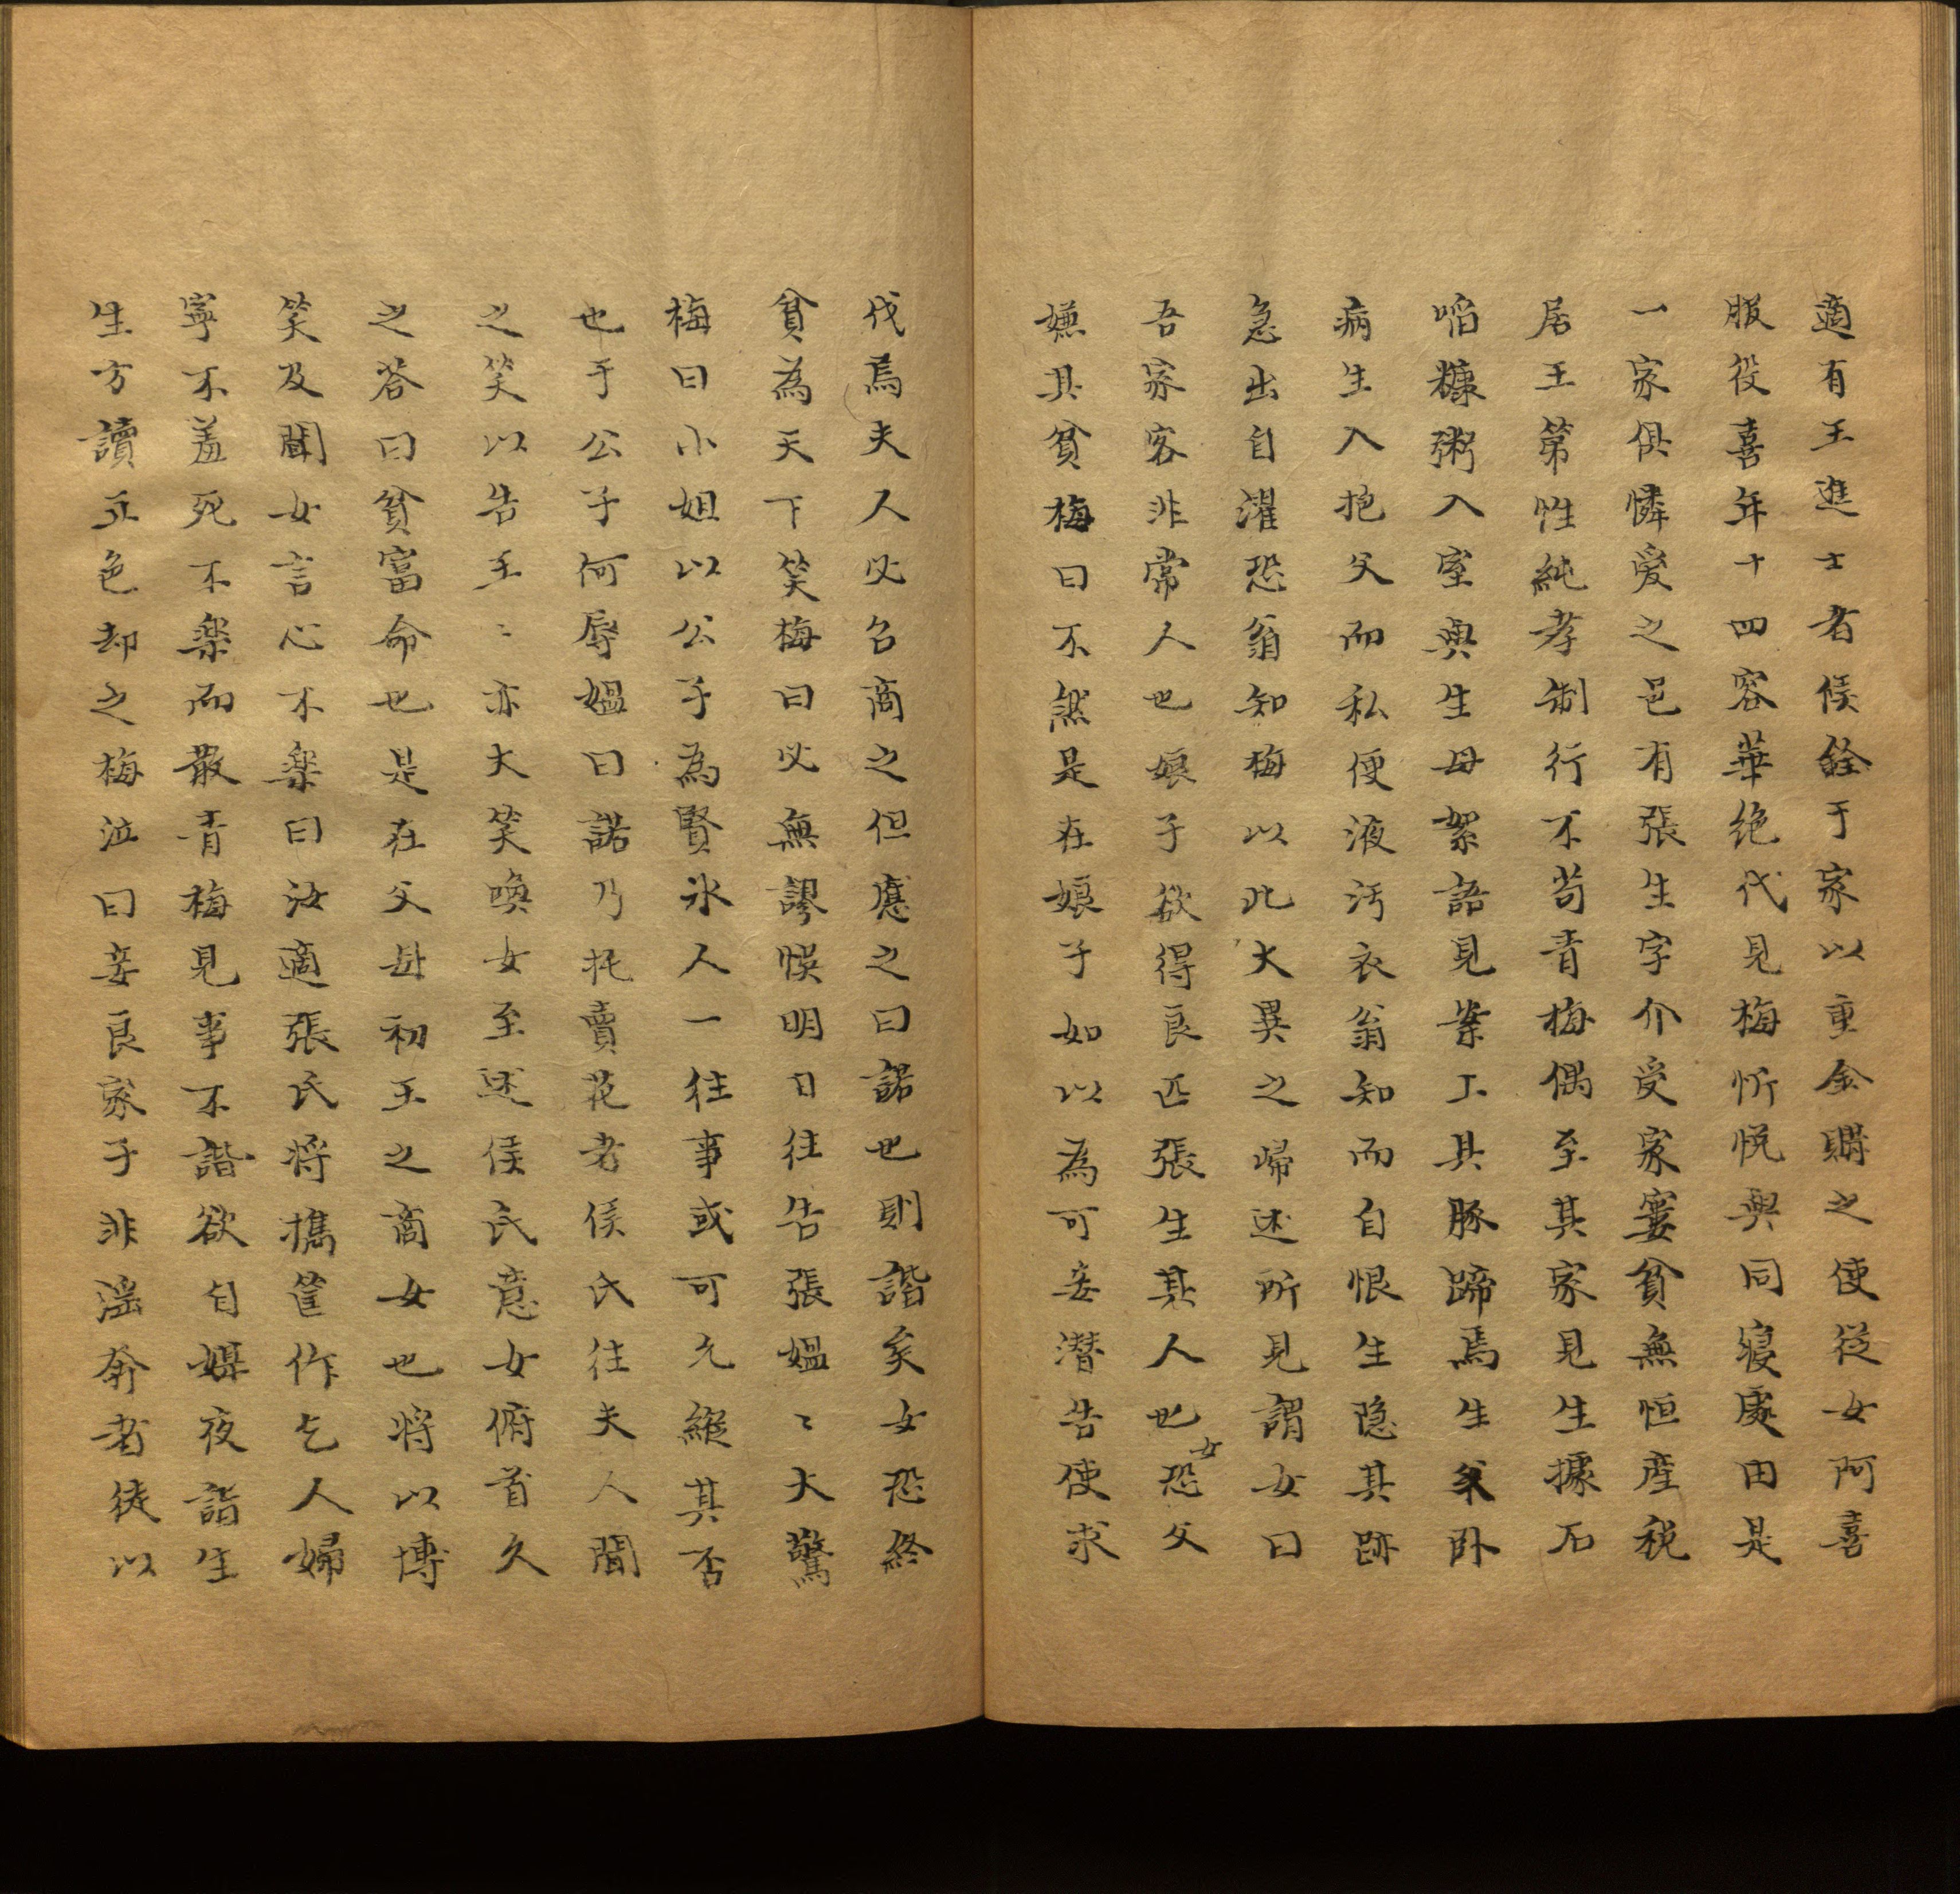 適有王進士者候銓于家以重金購之使從女阿喜
服役喜年十四容華绝代見梅忻悅與同寢處由是
一家俱憐爱之邑有張生字介受家窶貧無恒産税
居王第性純孝制行不苟青梅偶至其家見生據石
啗糠粥入室與生母絮語見案上具豚蹄焉生父卧
病生入抱父而私便液污衣翁知而自恨生隐其跡
急出自濯恐翁知梅以此大異之歸述所見謂女曰
吾家客非常人也娘子欲得良匹張生其人也女恐父
嫌其貧梅曰不然是在娘子如以為可妾潜告使求
伐焉夫人必召商之但應之曰諾也則諧矣女恐終
貧為天下笑梅曰必無謬悮明日往告張媼〻大驚
梅曰小姐以公子為賢氷人一往事或可允縱其否
也于公子何辱媼曰諾乃托賣花者侯氏往夫人聞
之笑以告王〻亦大笑喚女至述侯氏意女俯首久
之答曰貧富命也是在父母初王之商女也将以博
笑及聞女言心不樂曰汝適張氏将擕筐作乞人婦
寧不羞死不樂而散青梅見事不諧欲自媒夜詣生
生方讀正色却之梅泣曰妾良家子非滛奔者徒以